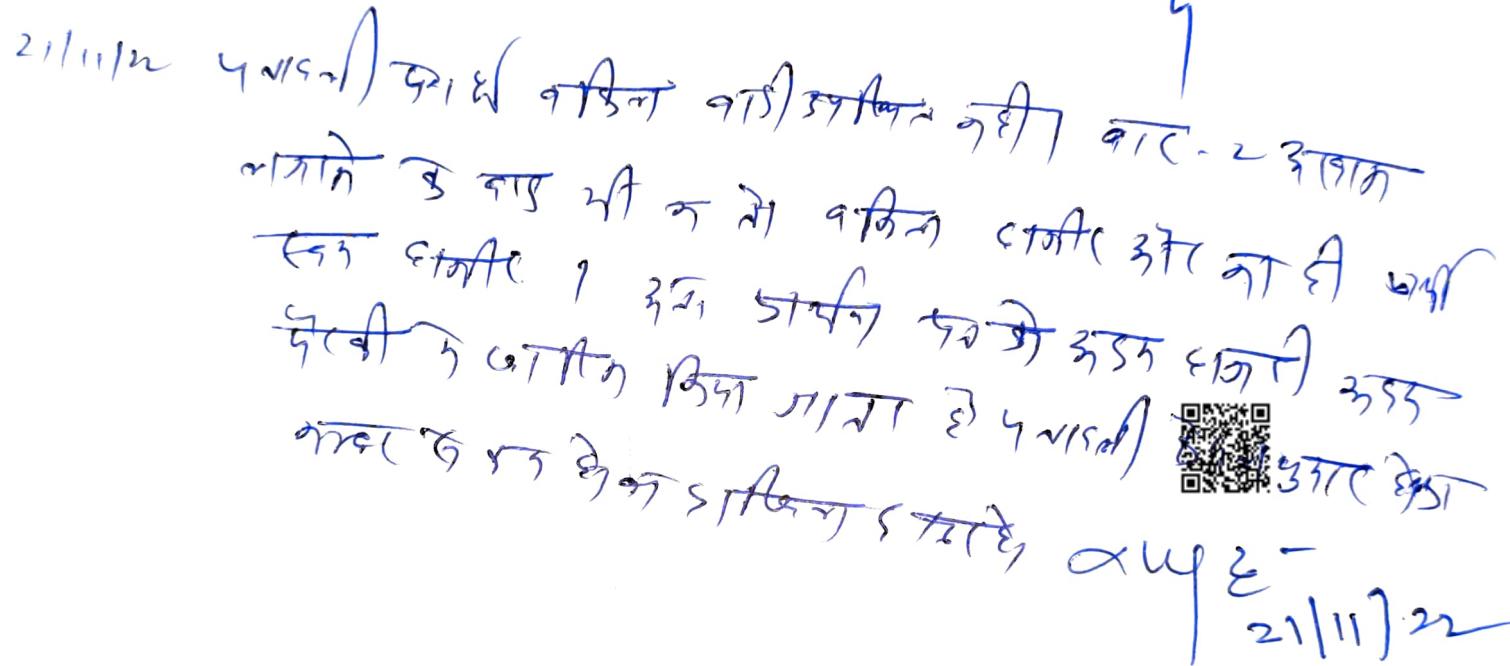 21/11/22 पत्रावली पेश हुई वकील वादी उपस्थित नहीं। बार-2 आवाज
लगाने के बाद भी न तो वकील हाजीर और ना ही प्रार्थी
स्वयं हाजीर। अतः प्रार्थना पत्र को अदम हाजरी अदम
पैरवी में खारीज किया जाता है पत्रावली शुमार होकर
नम्बर से कम होकर दाखिल दफ्तर हो
21/11/22